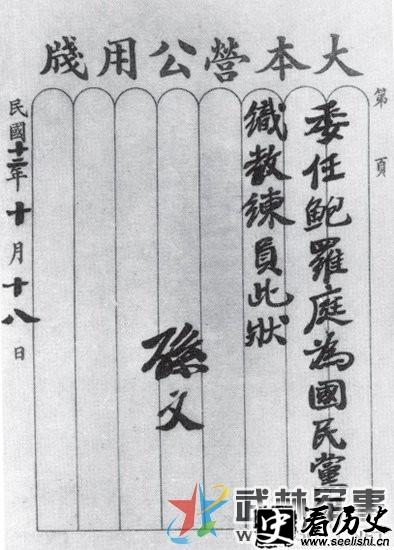 大本營公用牋
第 頁
委任鮑羅庭為國民黨
織教練員此狀
孫文
民國十二年十月十八日
武林军事
看历史
www.seelishi.cn